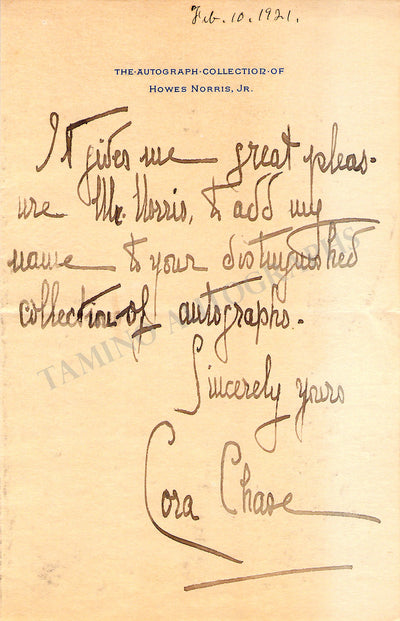 Feb. 10. 1921.
THE·AUTOGRAPH·COLLECTION·OF
HOWES NORRIS, JR.
It gives me great pleas-
ure Mr. Norris, to add my
name to your distinguished
collection of autographs.
TAMINO AUTOGRAPHS
Sincerely yours
Cora Chase